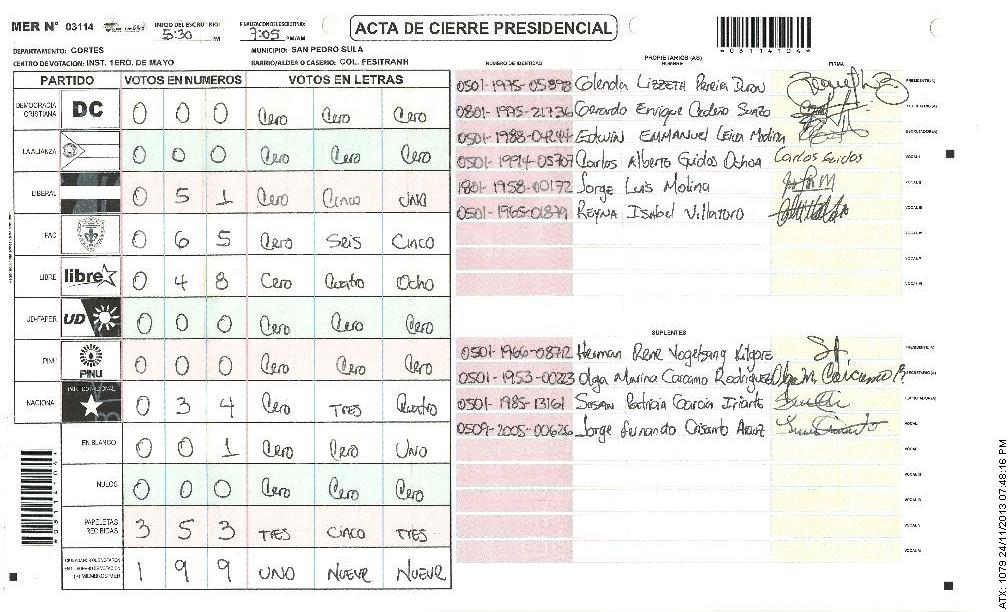 MER N° 03114 INICIO DEL ESCRUTINIO: 5:30 PM FINALIZACION DEL ESCRUTINIO: 7:05 PM/AM ACTA DE CIERRE PRESIDENCIAL
*03114104*
DEPARTAMENTO: CORTES MUNICIPIO: SAN PEDRO SULA
CENTRO DE VOTACION: INST. 1ERO. DE MAYO BARRIO/ALDEA O CASERIO: COL. FESITRANH
PARTIDO VOTOS EN NUMEROS VOTOS EN LETRAS
DEMOCRACIA CRISTIANA DC 0 0 0 Cero Cero Cero
LA ALIANZA 0 0 0 Cero Cero Cero
LIBERAL 0 5 1 Cero Cinco UNO
PAC 0 6 5 Cero SEIS CINCO
LIBRE libre 0 4 8 Cero Cuatro Ocho
UD-FAPER UD 0 0 0 Cero Cero Cero
PINU PINU 0 0 0 Cero Cero Cero
NACIONAL PARTIDO NACIONAL 0 3 4 Cero TRES Cuatro
EN BLANCO 0 0 1 Cero Cero UNO
NULOS 0 0 0 Cero Cero Cero
PAPELETAS RECIBIDAS 3 5 3 TRES CINCO TRES
(+) MIEMBROS MER 1 9 9 UNO NUEVE NUEVE
PROPIETARIOS (AS)
NUMERO DE IDENTIDAD FIRMA
0501-1975-05898 Lizzeth PRESIDENTE(A)
0801-1975-21736 Gerardo Enrique SECRETARIO(A)
0501-1988-04244 EDWIN EMMANUEL Molina ESCRUTADOR(A)
0501-1994-05707 Carlos Alberto Guidos Ochoa Carlos Guidos VOCAL I
1801-1958-00172 Jorge Luis Molina VOCAL II
0501-1965-01879 REYNA Isabel Villatoro VOCAL III
VOCAL IV
VOCAL V
VOCAL VI
SUPLENTES
0501-1966-08712 Herman Rene Vogelsang Kilgore PRESIDENTE(A)
0501-1953-00223 Olga Marina Carcamo Rodriguez Olga M. Carcamo R. SECRETARIO(A)
0501-1985-13161 SUSAN Patricia Garcia Iriarte ESCRUTADOR(A)
0509-2005-00626 Jorge Fernando Crisanto VOCAL I
VOCAL II
VOCAL III
VOCAL IV
VOCAL V
VOCAL VI
ATX: 1079 24/11/2013 07:48:16 PM